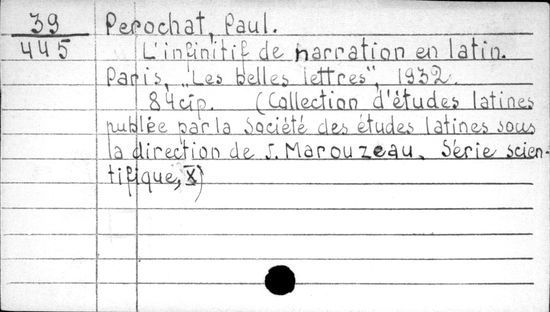 39 Perochat, Paul.
445 L'infinitif de narration en latin.
Paris, "Les belles lettres", 1932.
84 стр. (Collection d'études latines
publiée par la Société des études latines sous
la direction de J. Marouzeau. Série scien-
tifique, X)